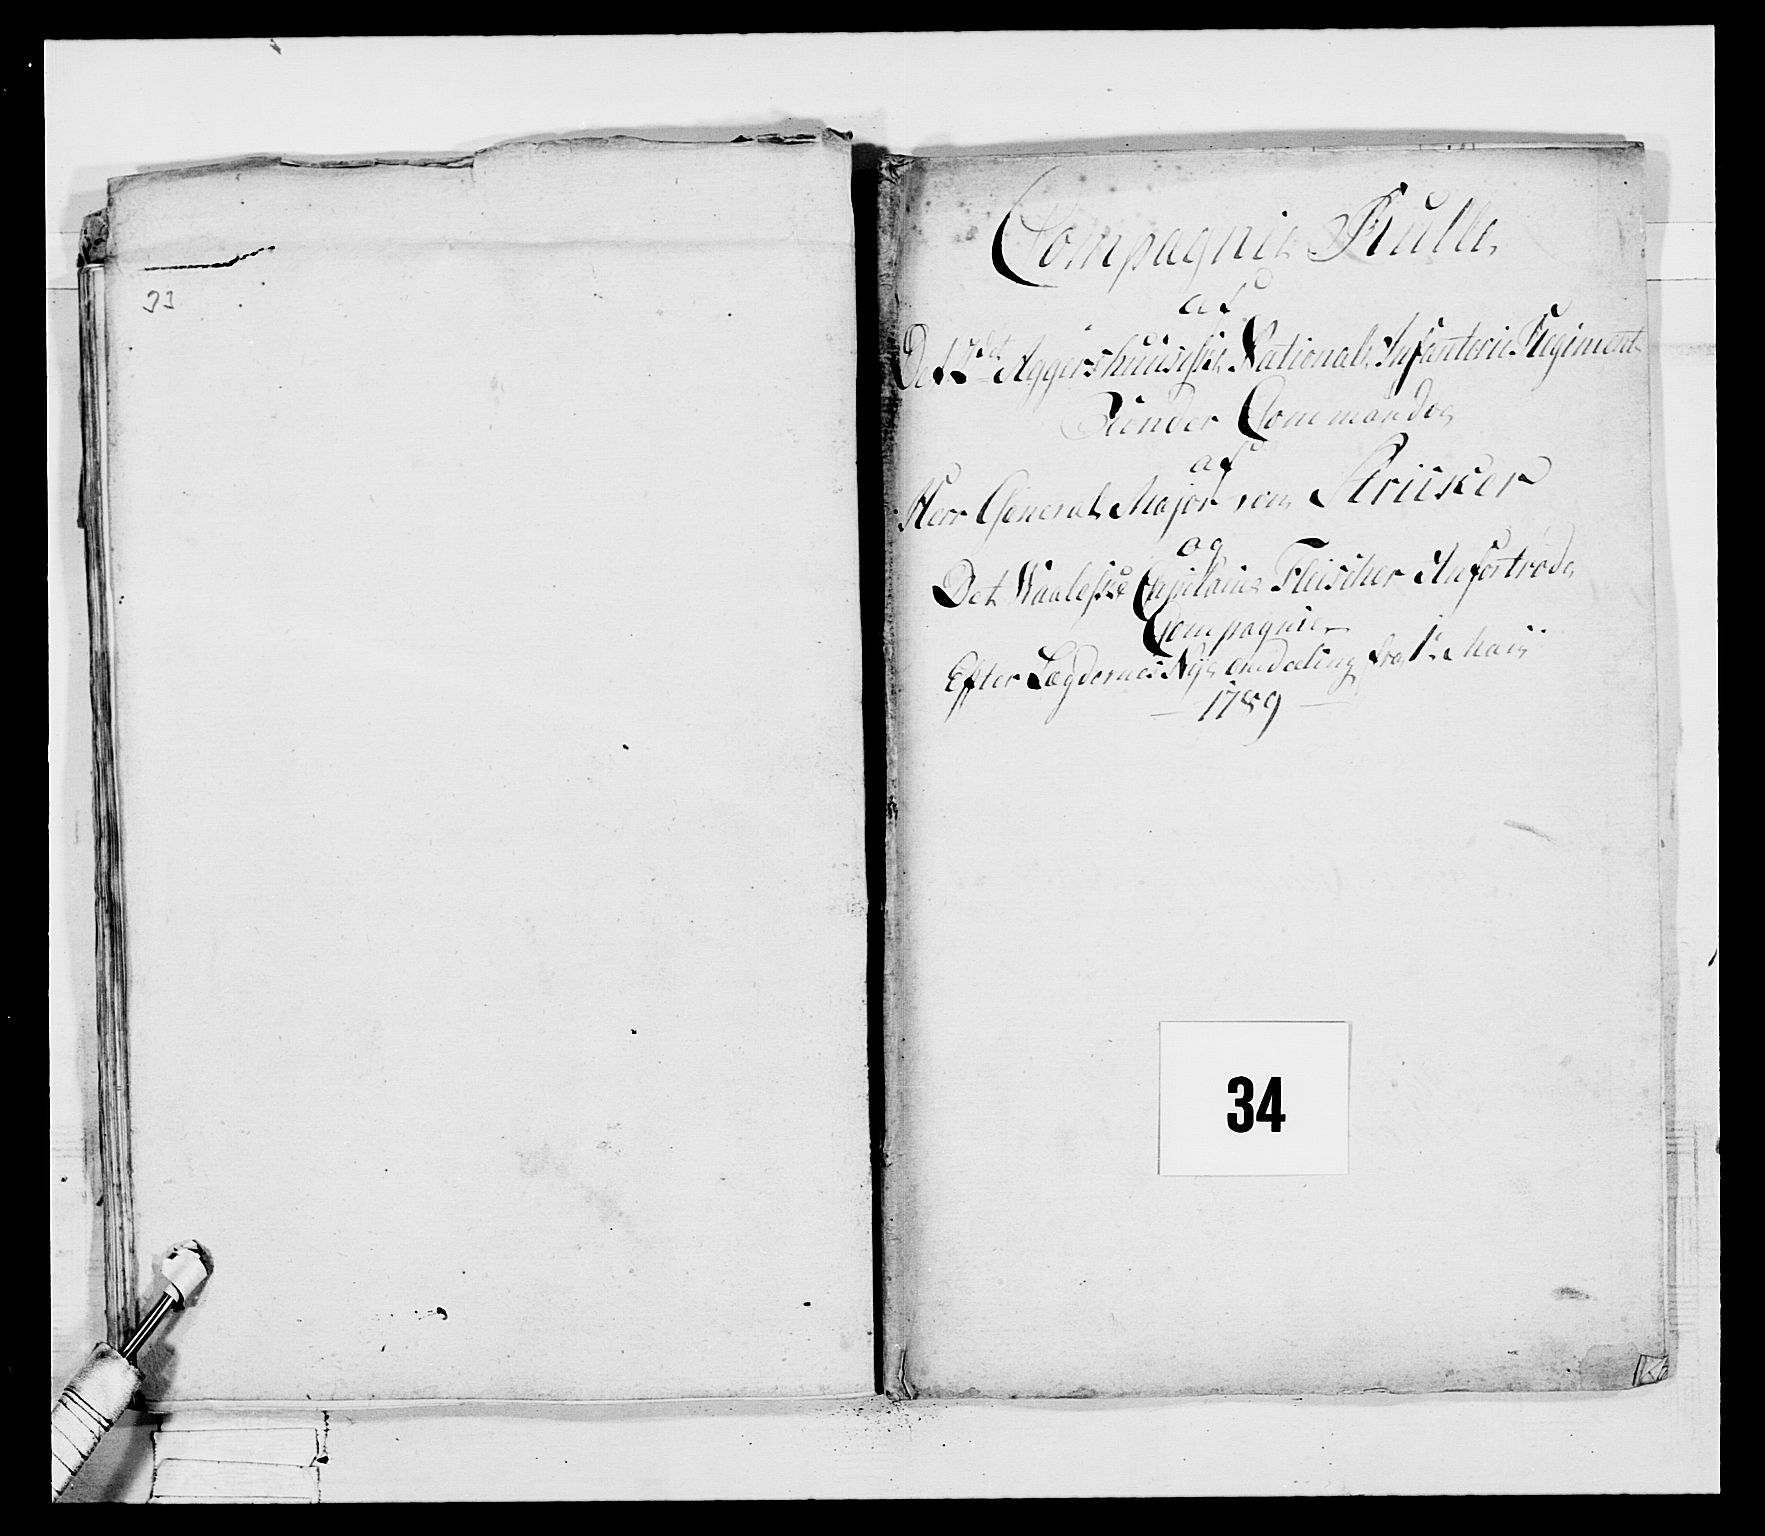 33
Compagnie Rulle
af
Det 2det Aggershuusiske Nationale Infanterie Regiment
Under Commando
af
Herr General Major von Stricker
og
Det Waalerske Capitaine Fleischer Anfortrode
Compagnie
Efter Lægdernes Nye omdeling fra 1te Maij
1789
34